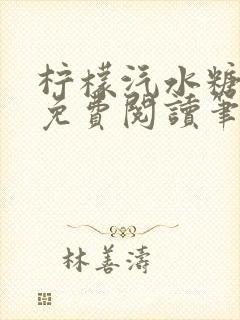 柠檬汽水糖
免費閱讀筆
林善濤